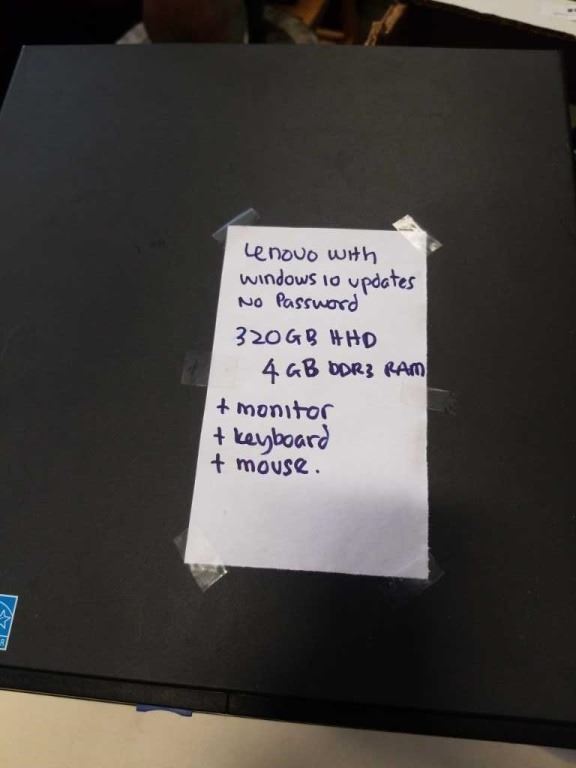 Lenovo with
windows 10 updates
No Password
320GB HHD
4GB DDR3 RAM
+ monitor
+ keyboard
+ mouse.